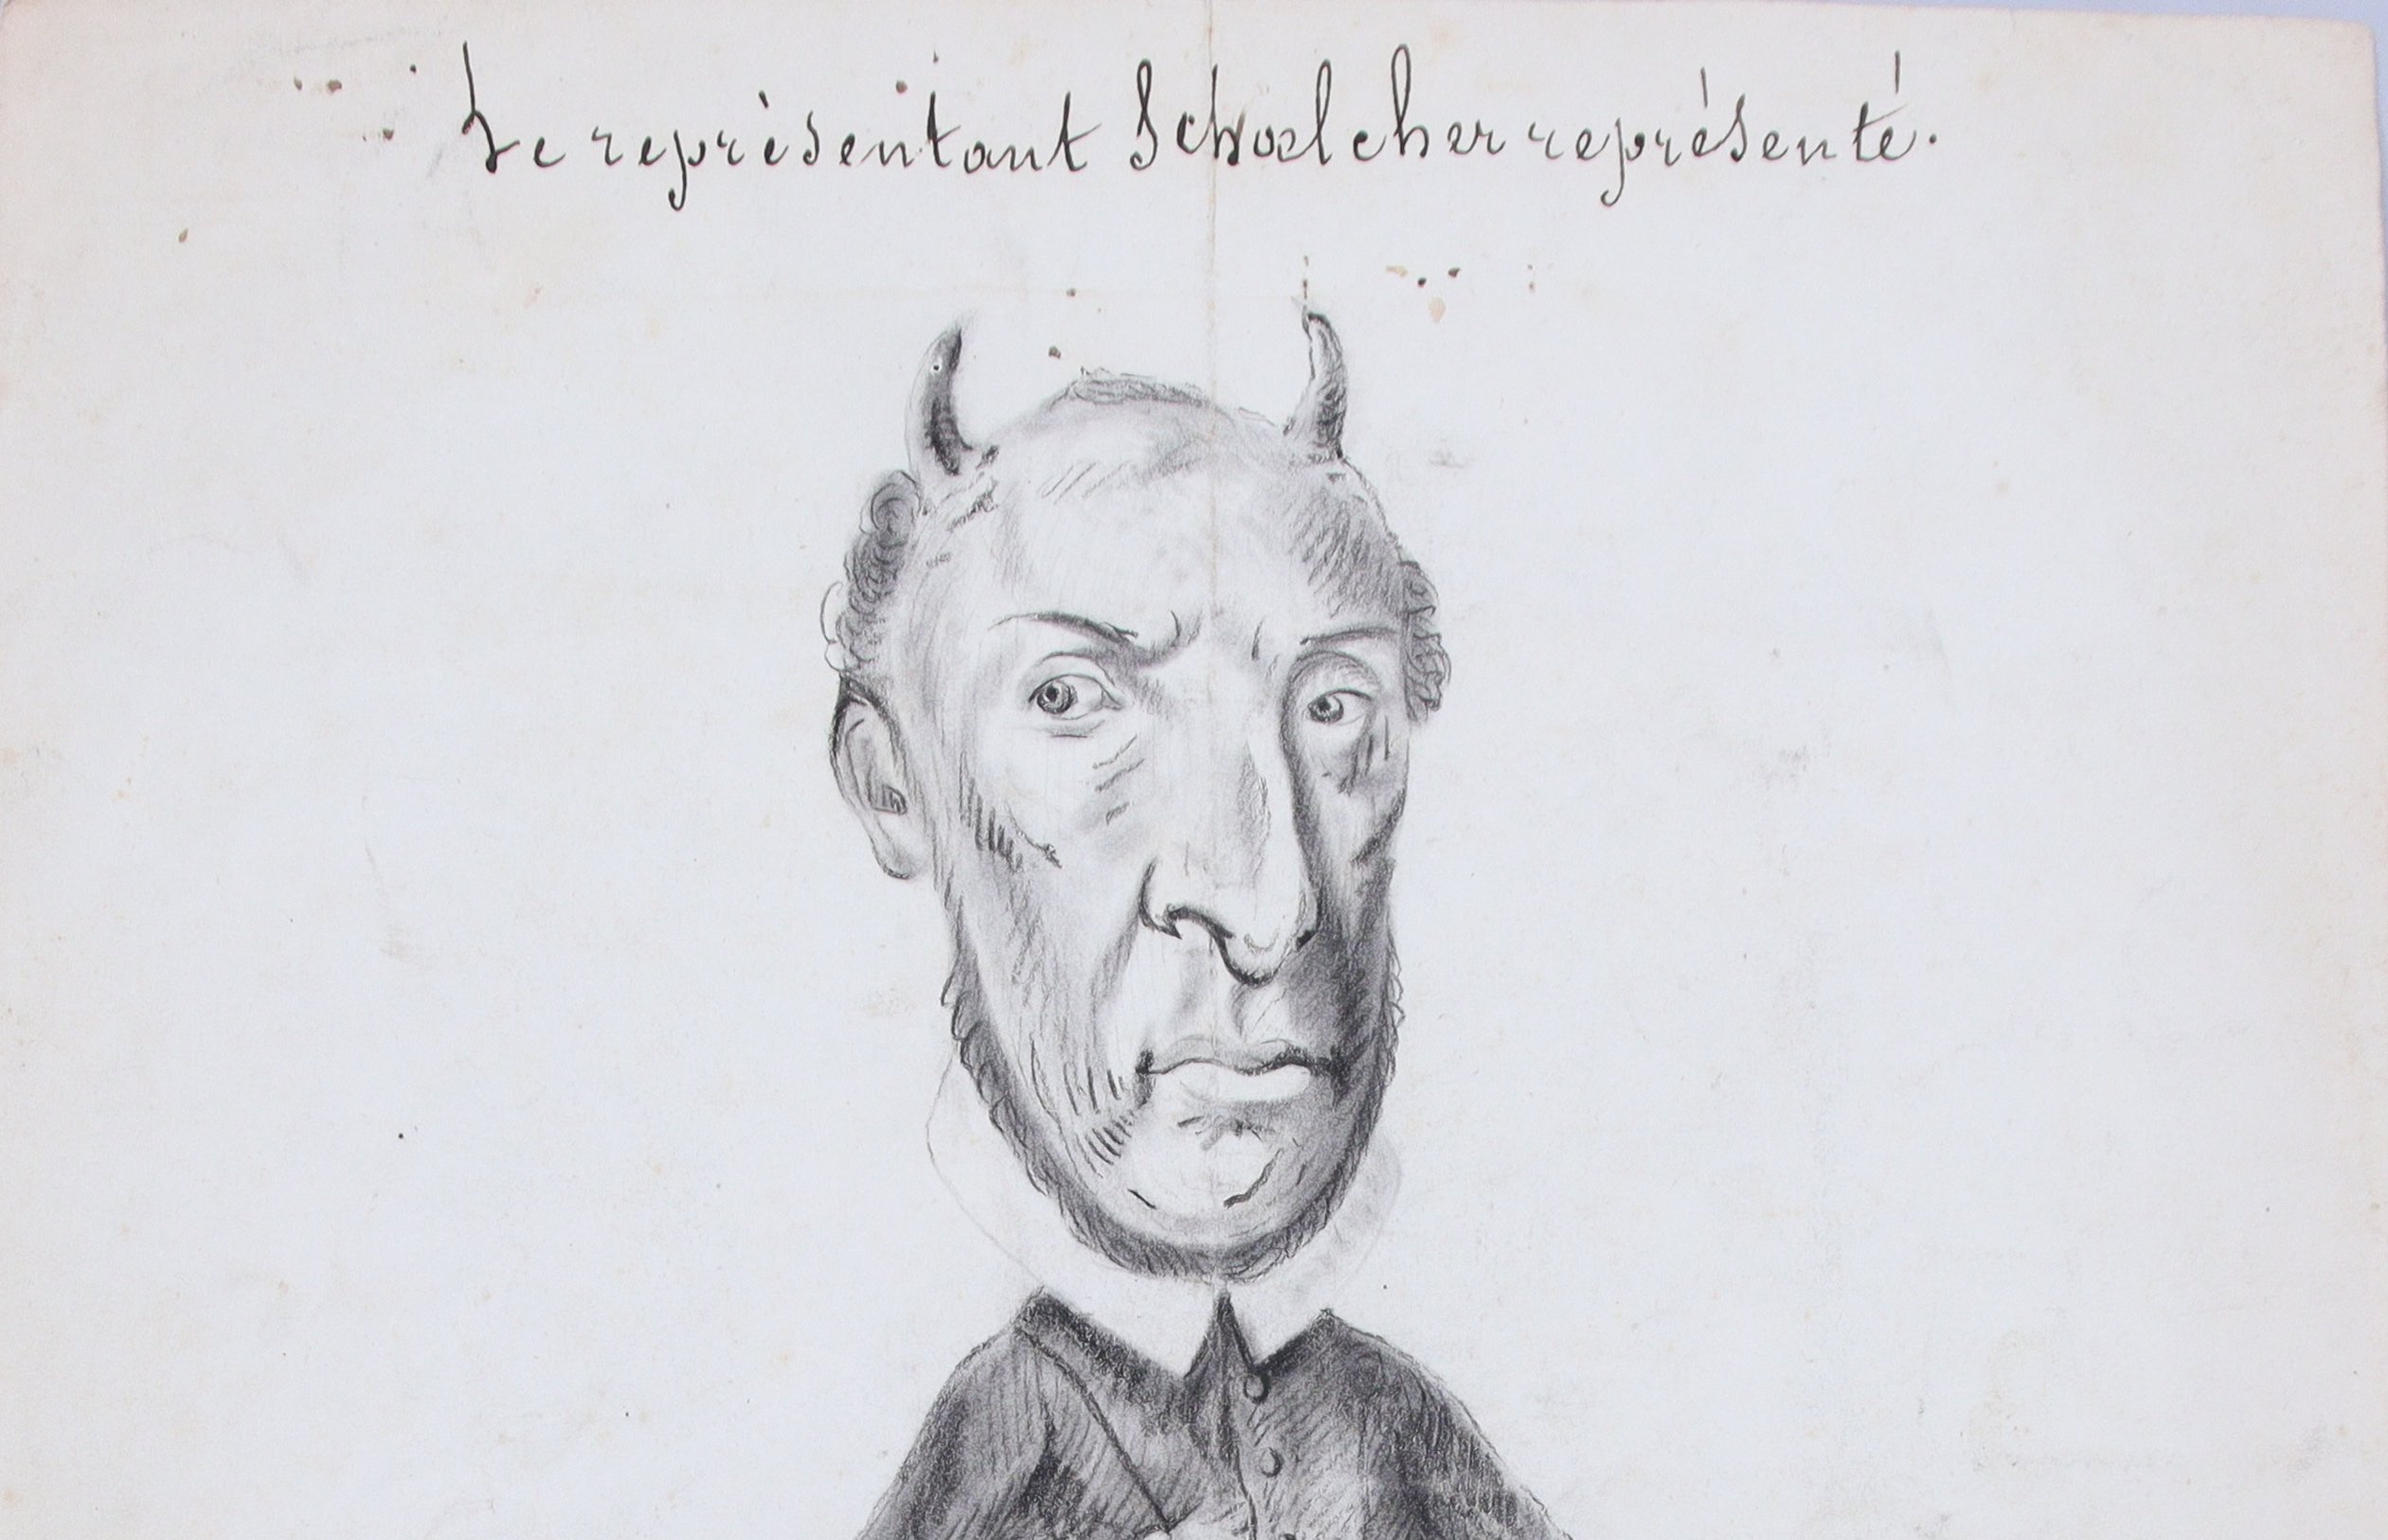 Le représentant Schœlcher représenté.